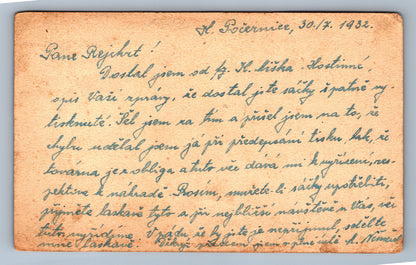 H. Počernice, 30./7. 1932.
Pane Rejchrt!
Dostal jsem od fy. H. Miška Hostinné,
opis Vaší zprávy, že dostal jste sáčky špatně vy-
tisknuté. Šel jsem na tím a přišel jsem na to, že
chybu udělal jsem já při předepsání tisku, tak, že
továrna je z obliga a tuto věc dává mi k vyřízení, res-
pektive k náhradě. Prosím, můžete-li sáčky upotřebiti,
přijměte laskavě tyto a při nejbližší návštěvě u Vás, věc
tuto vyřídíme. V pádu, že by jste je nepřijmul, sdělte
mně laskavě. jsem v plné úctě A. Němec